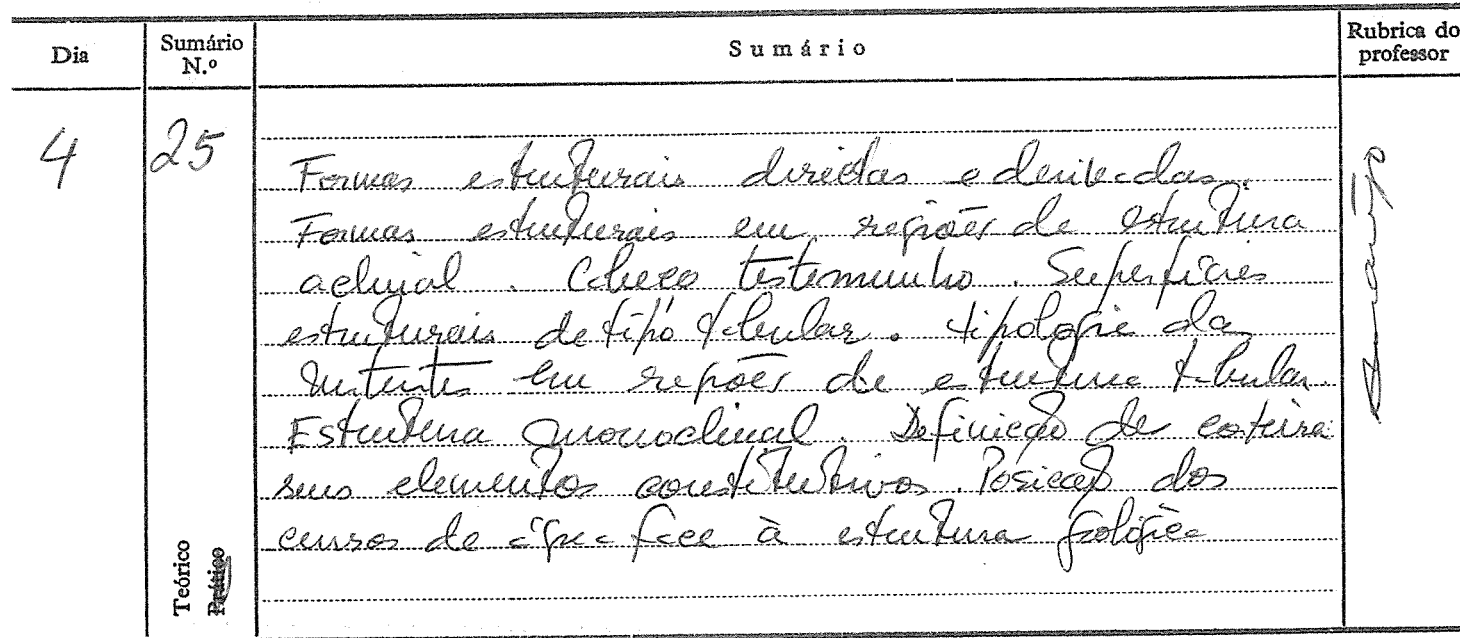 Dia
Sumário N.º
Sumário
Rubrica do professor
4
25
Formas estruturais directas e derivadas.
Formas estruturais em regiões de estrutura
aclinal. Cabeço testemunho. Superfícies
estruturais de tipo tabular. tipologia da
em regiões de estrutura tabular.
Estrutura monoclinal. Definição de costeira
seus elementos constitutivos. Posição dos
cursos de água face à estrutura geológica
Teórico
Prático